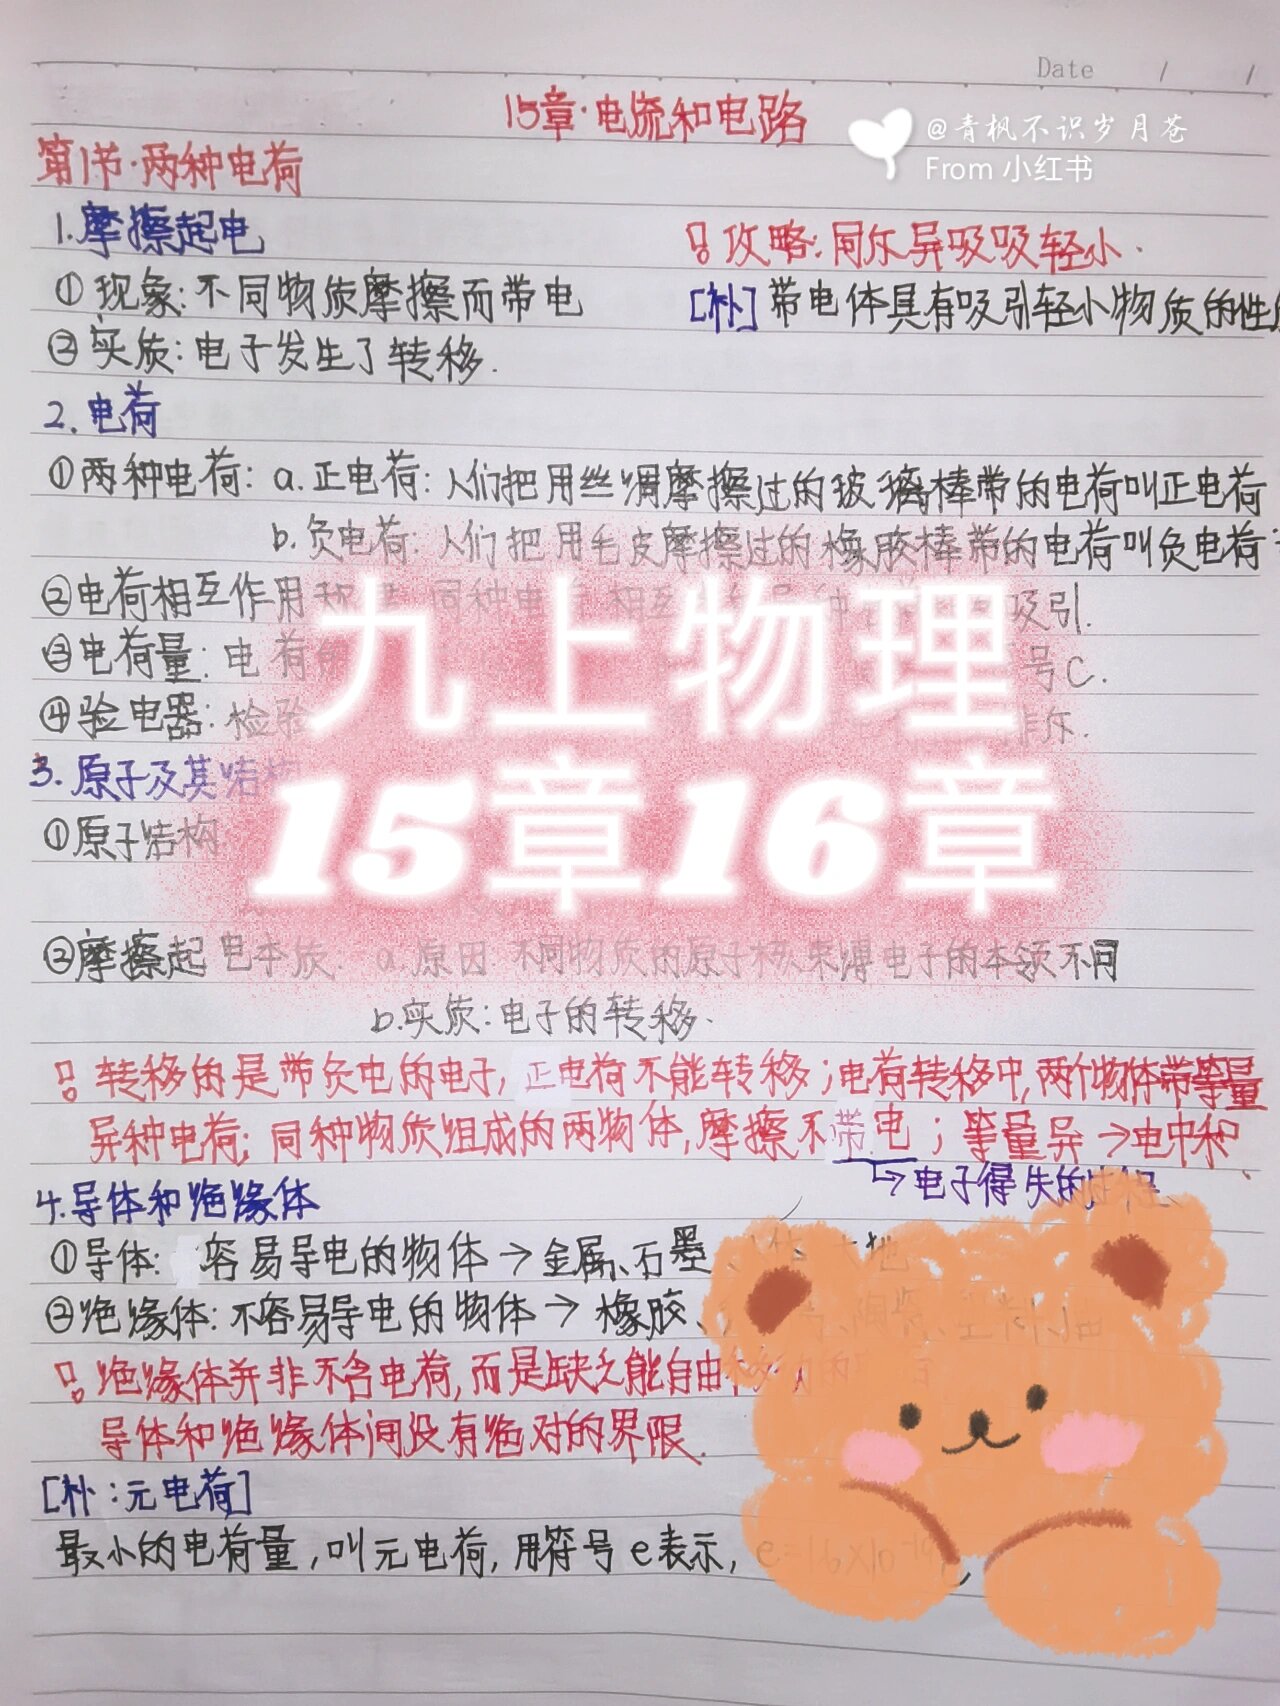 Date / /
15章·电流和电路
@青枫不识岁月苍
From 小红书
第1节·两种电荷
1.摩擦起电
攻略:同斥异吸吸轻小.
①现象:不同物质摩擦而带电
[补]带电体具有吸引轻小物质的性
②实质:电子发生了转移.
2.电荷
①两种电荷: a.正电荷:人们把用丝绸摩擦过的玻璃棒带的电荷叫正电荷
b.负电荷:人们把用毛皮摩擦过的橡胶棒带的电荷叫负电荷
②电荷相互作用规律:同种电荷相互 吸引.
③电荷量:电荷 号C.
④验电器:检验 排斥.
九上物理
15章16章
3.原子及其结构
①原子结构
②摩擦起电本质: a.原因:不同物质的原子核束缚电子的本领不同
b.实质:电子的转移.
转移的是带负电的电子,正电荷不能转移;电荷转移中,两个物体带等量
异种电荷;同种物质组成的两物体,摩擦不带电;等量异→电中和
↳电子得失的过程
4.导体和绝缘体
①导体: 容易导电的物体→金属、石墨、人体、大地
②绝缘体:不容易导电的物体→橡胶、 、陶瓷、塑料、油
绝缘体并非不含电荷,而是缺乏能自由移动的
导体和绝缘体间没有绝对的界限.
[补:元电荷]
最小的电荷量,叫元电荷,用符号e表示,e=1.6×10⁻¹⁹